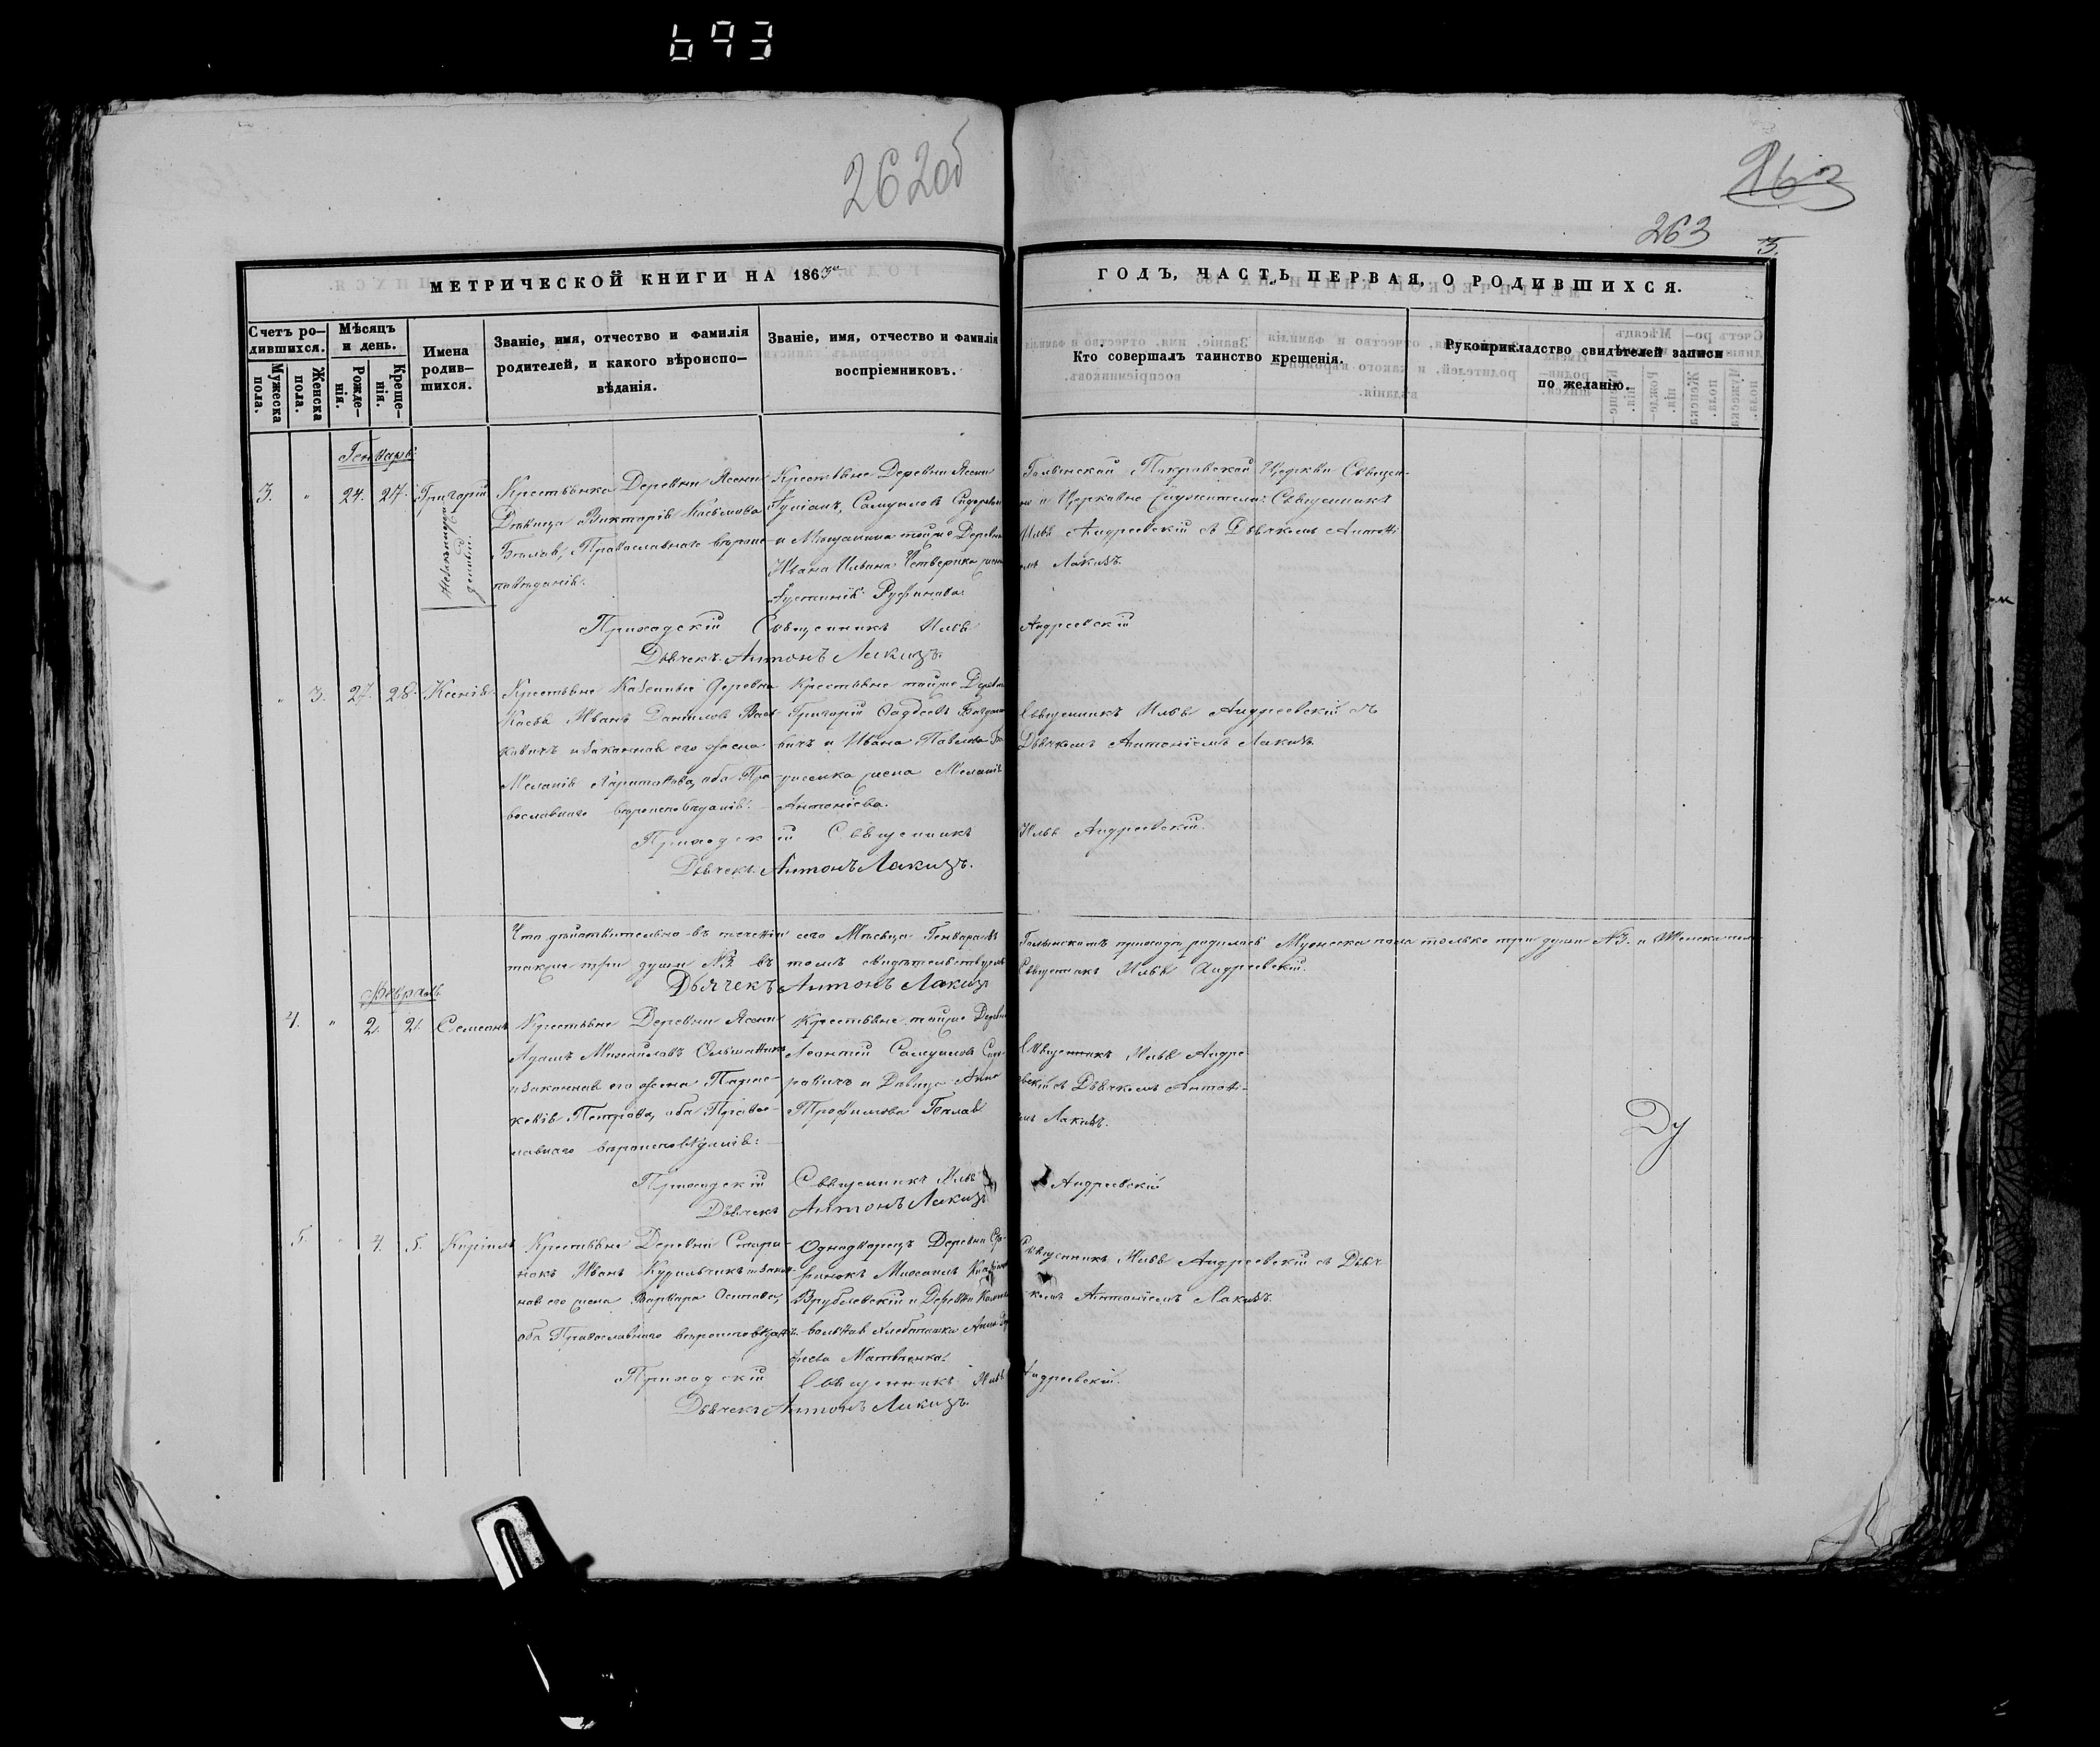 693
262 об
263
263
3.
МЕТРИЧЕСКОЙ КНИГИ НА 1863й
ГОДЪ, ЧАСТЬ ПЕРВАЯ, О РОДИВШИХСЯ.
Счетъ родившихся.
Мужеска пола.
Женска пола.
Мѣсяцъ и день.
Рожденія.
Крещенія.
Имена родившихся.
Званіе, имя, отчество и фамилія
родителей, и какого вѣроиспо-
вѣданія.
Званіе, имя, отчество и фамилія
воспріемниковъ.
Кто совершалъ таинство крещенія.
Рукоприкладство свидѣтелей записи
по желанію.
Генварь
3. " 24. 27. Григорій
Крестьянка Деревни Ясени
Дѣвица Викторія
Православнаго вѣроис-
повѣданія.
Крестьяне Деревни Ясени
Самуилов
и Мещанина тойже Деревни
Ивана Ильина Четверика жена
Іустинія Руфинова.
Покровской Церкви Священ-
но и Церковно Служители: Священникъ
Илья Андреевскій съ Дьячкомъ Антоні-
емъ Лакизъ.
Приходскій Священникъ Илья Андреевскій
Дьячекъ Антонъ Лакизъ.
" 3. 27. 28. Ксенія
Крестьяне Казенные Деревни
Иванъ Данилов Вась-
ковичъ и Законная его жена
Меланія Харитонова, оба Пра-
вославнаго вѣроисповѣданія.
Крестьяне тойже Деревни
Григорій Фадѣевъ Богдано-
вичъ и Ивана Павлова
жена Меланія
Антоніева.
Священникъ Илья Андреевскій съ
Дьячкомъ Антоніемъ Лакизъ
Приходскій Священникъ Илья Андреевскій.
Дьячекъ Антонъ Лакизъ.
Что дѣйствительно въ теченіи сего Мѣсяца Генваря въ приходѣ родилось Мужеска пола только три души №3. и Женска пола
также три души №3. въ томъ свидѣтельствуемъ Священникъ Илья Андреевскій.
Дьячекъ Антонъ Лакизъ
Февраль
4. " 2. 2. Семеонъ
Крестьяне Деревни Ясени
Адамъ Михайловъ
и Законная его жена Парас-
кевія Петрова, оба Правос-
лавнаго вѣроисповѣданія:
Крестьяне тойже Деревни
Леонтій Самуиловъ Сидо-
ровичъ и Дѣвица Анна
Трофимова
Священникъ Илья Андре-
евскій съ Дьячкомъ Антоні-
емъ Лакизъ.
Приходскій Священникъ Илья Андреевскій
Дьячекъ Антонъ Лакизъ
5. " 4. 5. Кирилъ
Крестьяне Деревни
Иванъ Курильчикъ и Закон-
ная его жена Варвара Осипова,
оба Православнаго вѣроисповѣдан.
Однодворецъ Деревни
Михаилъ
Врублевскій и Деревни
Анна
Матвѣенка.
Священникъ Илья Андреевскій съ Дьяч-
комъ Антоніемъ Лакизъ.
Приходскій Священникъ Илья Андреевскій.
Дьячекъ Антонъ Лакизъ.